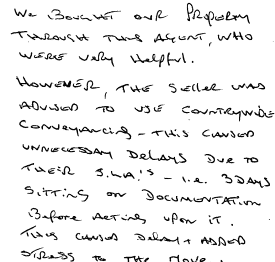 We Bought our Property
Through this Agent, who
were very helpful.
However, the seller was
advised to use Countrywide
Conveyancing - this caused
unnecessary delays due to
their S.L.A.'s - i.e. 3 days
sitting on documentation
before acting upon it.
This caused delay + added
stress to the move.